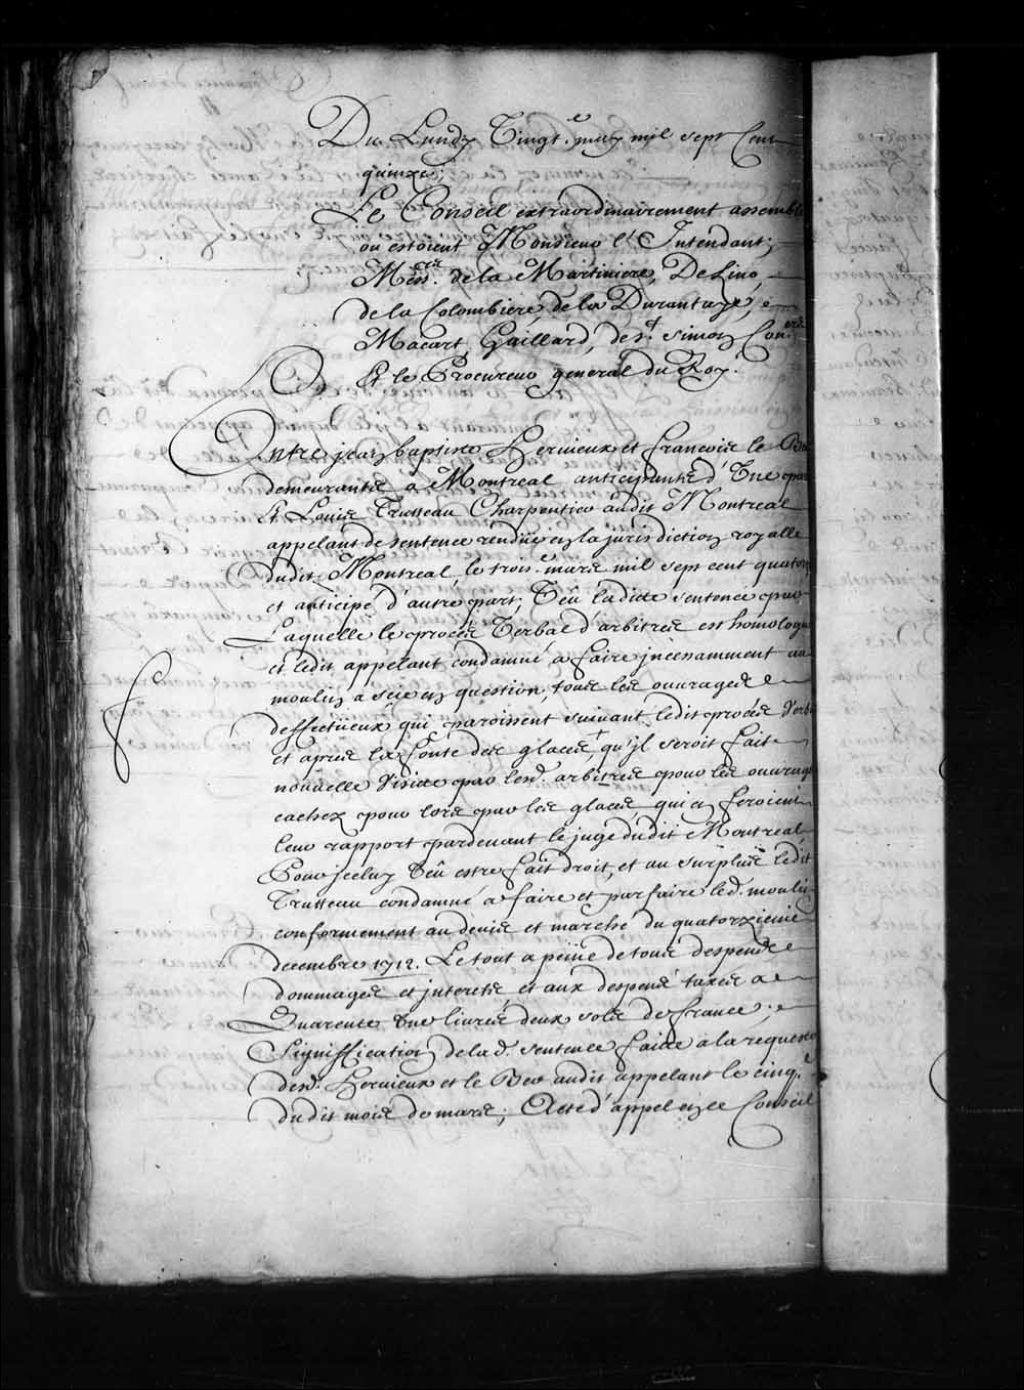 Du Lundy Vingt.e may mil sept Cent
quinze;
Le Conseil extraordinairement assemblé
ou estoient Monsieur l'Intendant;
Mess.rs de la Martiniere, De Lino,
de la Colombiere, de la Durantaye,
Macart, Gaillard, de s.t Simon Con.ers
Et le Procureur general du Roy.
Entre jean baptiste Hervieux et francois le Ber
demeurants a Montreal anticipants d'Une part
Et Louis Trutteau Charpentier audit Montreal
appelant de sentence rendüe en la jurisdiction royalle
dudit Montreal le trois.e mars mil sept cent quatorze
et anticipé d'autre part; Veu ladite sentence par
Laquelle le procés Verbal d'arbitres est homologué
et ledit appelant condamné a faire incessamment au
moulin a scie en question, tous les ouvrages
deffectüeux qui paroissent suivant ledit procés Verbal
et aprés la fonte des glaces, qu'jl seroit fait
nouvelle Visite par lesd. arbitres pour les ouvrages
cachez pour lors par les glaces qui en feroient
leur rapport pardevant le juge dudit Montreal
Pour jceluy Veu estre fait droit, et au surplus ledit
Trutteau condamné a faire et parfaire led. moulin
conformement au devis et marché du quatorzieme
decembre 1712. Le tout a peine de tous despens
dommages et jnterests et aux despens taxés a
Quarente Une livres deux sols de france;
Signiffication de la d. sentence faite a la requeste
desd. Hervieux et le Ber audit appelant le cinq.e
dudit mois de mars; Acte d'appel en ce Conseil